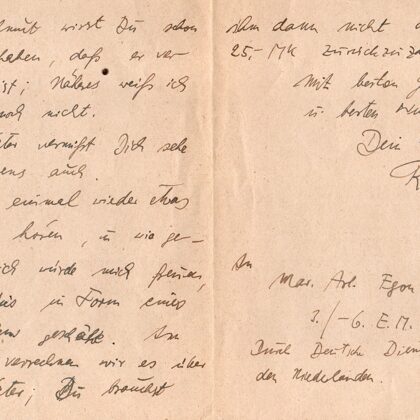 wirst Du schon
haben, daß er ver-
ist; Näheres weiß ich
noch nicht.
vermißt Dich sehr
auch.
einmal wieder etwas
hören, u. wie ge-
ich würde mich freuen,
in Form eines
geschäft. An
verrechnen wir es über
Du brauchst
ihm dann nicht
25,- Mk zurückzuza
Mit besten
u. besten
Dein
An
Mar. Art. Egon
3./-6. E.M.
Durch Deutsche Dien
den Niederlanden.